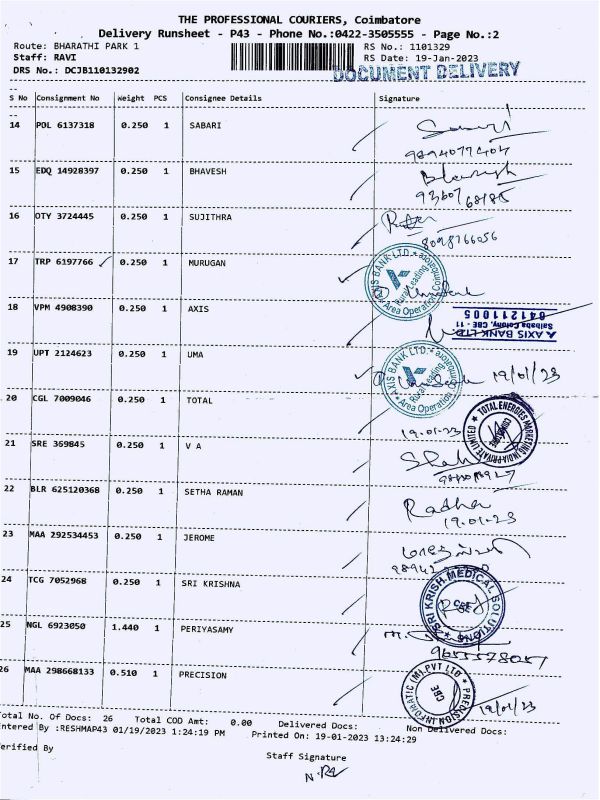 THE PROFESSIONAL COURIERS, Coimbatore
Delivery Runsheet - P43 - Phone No.:0422-3505555 - Page No.:2
Route: BHARATHI PARK 1 RS No.: 1101329
Staff: RAVI RS Date: 19-Jan-2023
DRS No.: DCJB110132902 DOCUMENT DELIVERY
S No Consignment No Weight PCS Consignee Details Signature
14 POL 6137318 0.250 1 SABARI
15 EDQ 14928397 0.250 1 BHAVESH
16 OTY 3724445 0.250 1 SUJITHRA
8098766056
17 TRP 6197766 0.250 1 MURUGAN
AXIS BANK LTD.
Area Operation
18 VPM 4908390 0.250 1 AXIS
AXIS BANK LTD
Saibaba Colony, CBE - 11
641211005
19 UPT 2124623 0.250 1 UMA
AXIS BANK LTD.
Area Operation
19/01/23
20 CGL 7009046 0.250 1 TOTAL
TOTAL ENERGIES MARKETING INDIA PRIVATE LIMITED
19.01.23
21 SRE 369845 0.250 1 V A
22 BLR 625120368 0.250 1 SETHA RAMAN
Radha
19.01.23
23 MAA 292534453 0.250 1 JEROME
24 TCG 7052968 0.250 1 SRI KRISHNA
SRI KRISH MEDICAL SOLUTIONS
25 NGL 6923050 1.440 1 PERIYASAMY
9655578057
26 MAA 298668133 0.510 1 PRECISION
PRECISION INFOMATIC (M) PVT LTD
CBE
19/01/23
Total No. Of Docs: 26 Total COD Amt: 0.00 Delivered Docs: Non Delivered Docs:
ntered By :RESHMAP43 01/19/2023 1:24:19 PM Printed On: 19-01-2023 13:24:29
erified By
Staff Signature